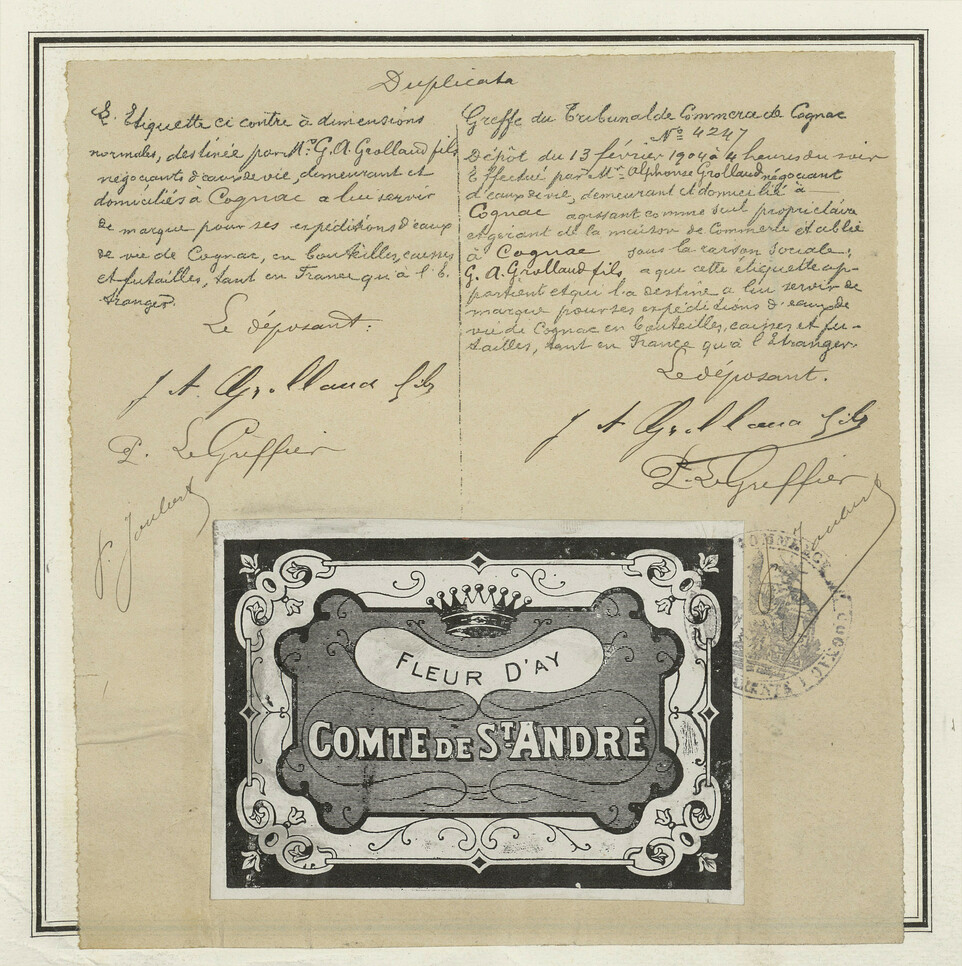 Duplicata
Etiquette ci contre à dimensions
normales, destinée par Mr. G. A. Grollaud fils
négociants d'eaux de vie, demeurant et
domiciliés à Cognac a lui servir
de marque pour ses expéditions d'eaux
de vie de Cognac, en bouteilles, caisses
et futailles, tant en France qu'à l'E-
tranger.
Le déposant:
J A. Grollaud fils
P. Le Greffier
P. Joubert
Greffe du Tribunal de Commerce de Cognac
No 4247
Dépôt du 13 février 1904 à 4 heures du soir
Effectué par Mr. Alphonse Grollaud négociant
d'eaux de vie, demeurant et domicilié à
Cognac agissant comme seul propriétaire
et gérant de la maison de Commerce établie
à Cognac sous la raison sociale:
G. A. Grollaud fils, a qui cette étiquette ap-
partient et qui l'a destine a lui servir de
marque pour ses expéditions d'eaux de
vie de Cognac en bouteilles, caisses et fu-
tailles, tant en France qu'à l'Etranger.
Le déposant.
J A Grollaud fils
P. Le Greffier
Joubert
COMMERCE COGNAC
FLEUR D'AY
COMTE DE ST ANDRÉ